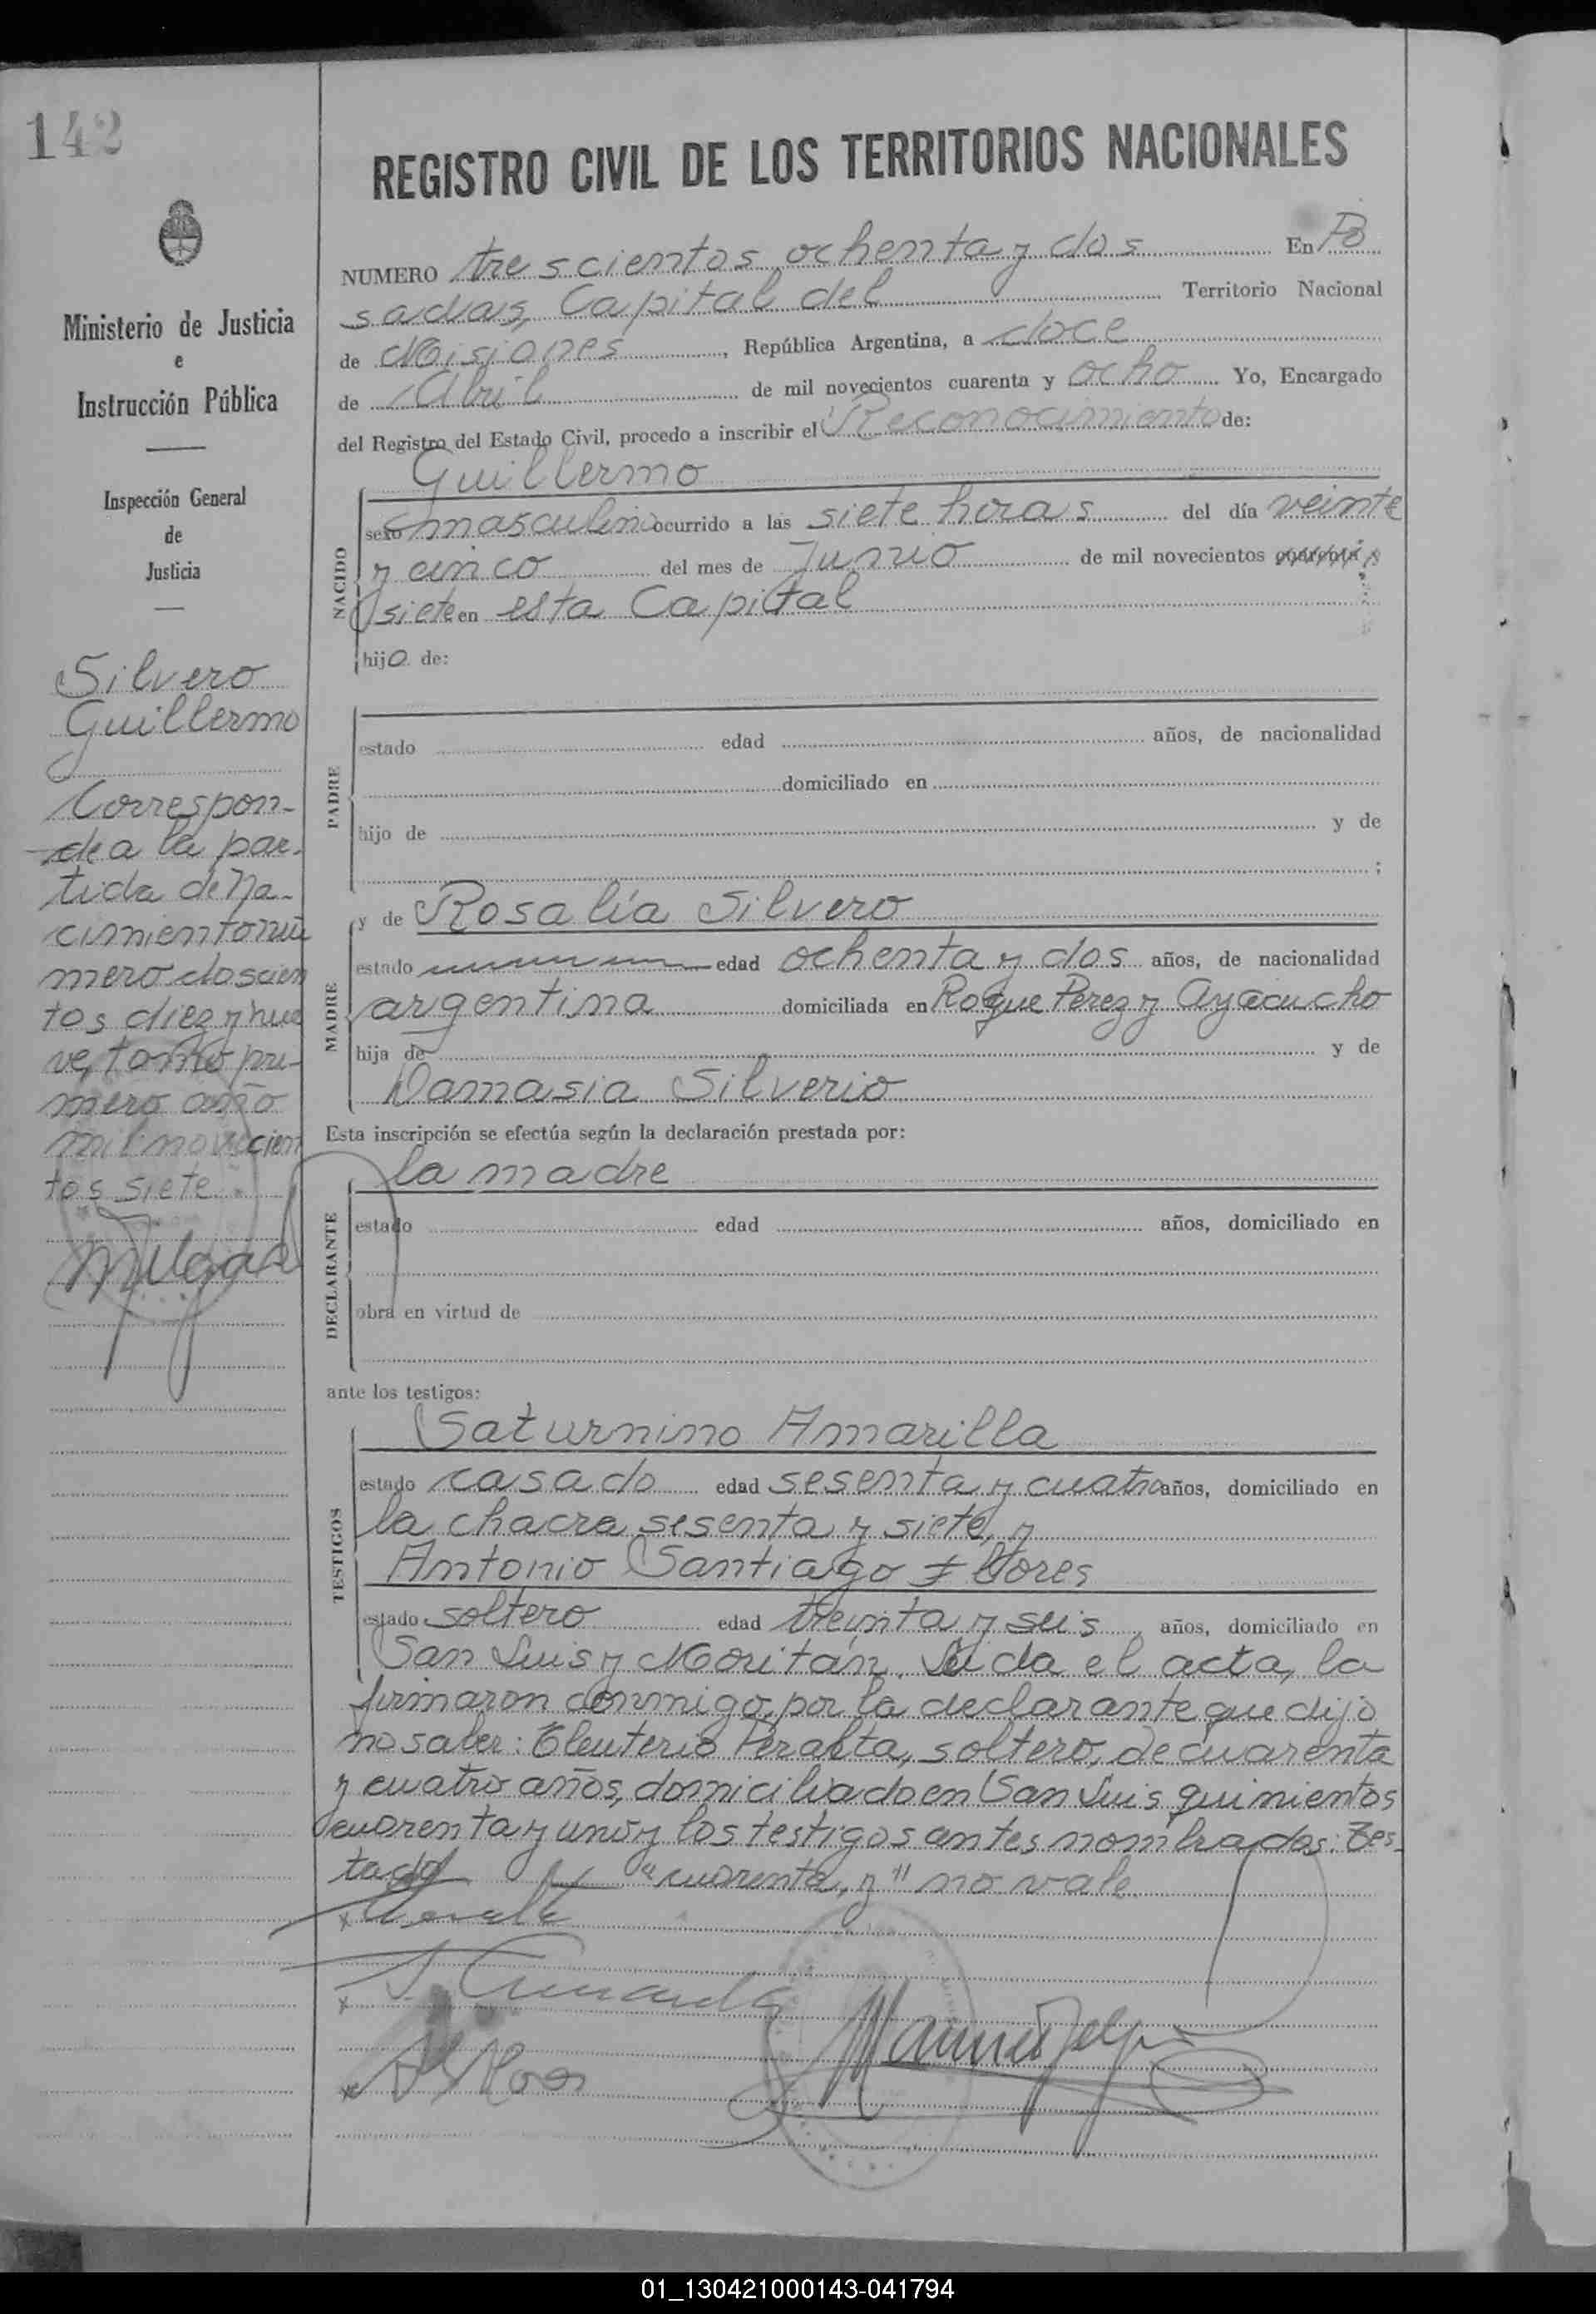 142
REGISTRO CIVIL DE LOS TERRITORIOS NACIONALES
Ministerio de Justicia
e
Instrucción Pública
Inspección General
de
Justicia
Silvero
Guillermo
Correspon-
de a la par-
tida de Na-
cimiento nú
mero doscien
tos diez y nue
ve, tomo pri-
mero año
mil novecien
tos siete
NUMERO trescientos ochenta y dos En Po
sadas, Capital del Territorio Nacional
de Misiones, República Argentina, a doce
de Abril de mil novecientos cuarenta y ocho Yo, Encargado
del Registro del Estado Civil, procedo a inscribir el Reconocimiento de:
Guillermo
NACIDO
sexo masculino ocurrido a las siete horas del día veinte
y cinco del mes de Junio de mil novecientos cuarenta y
siete en esta Capital
hijo de:
PADRE
estado edad años, de nacionalidad
domiciliado en
hijo de y de
;
MADRE
y de Rosalía Silvero
estado edad ochenta y dos años, de nacionalidad
argentina domiciliada en Roque Perez y Ayacucho
hija de y de
Damasia Silverio
Esta inscripción se efectúa según la declaración prestada por:
la madre
DECLARANTE
estado edad años, domiciliado en
obra en virtud de
ante los testigos:
TESTIGOS
Saturnino Amarilla
estado casado edad sesenta y cuatro años, domiciliado en
la chacra sesenta y siete, y
Antonio Santiago Flores
estado soltero edad treinta y seis años, domiciliado en
San Luis y Moritán. Leida el acta, la
firmaron conmigo, por la declarante que dijo
no saber: Eleuterio Peralta, soltero, de cuarenta
y cuatro años, domiciliado en San Luis quinientos
cuarenta y uno y los testigos antes nombrados: Tes-
tado "cuarenta, y" no vale.
01_130421000143-041794